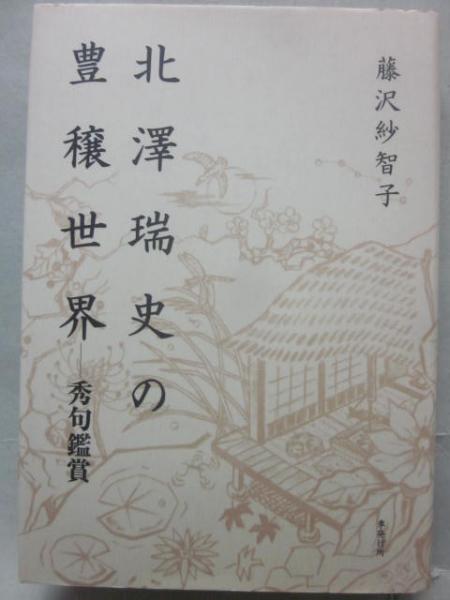 藤沢紗智子
北澤瑞史の
豊穣世界
―秀句鑑賞
季発行所